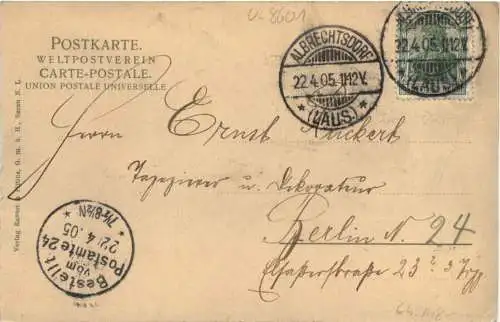 U-8601
POSTKARTE.
WELTPOSTVEREIN
CARTE-POSTALE.
UNION POSTALE UNIVERSELLE
ALBRECHTSDORF
22.4.05.11-12V.
* (LAUS.) *
22.4.05.11-12V.
(LAUS.)
Herrn Ernst Kuckert
Tapezierer u. Dekorateur
Berlin N. 24
Elsasserstrasse 23
Bestellt
vom
Postamte 24
22.4.05
7½-8½N
Verlag